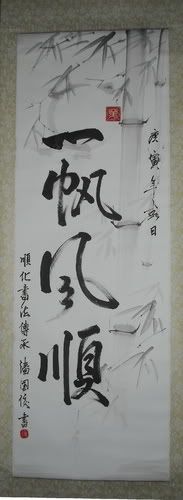 一帆風順
庚寅年
順化書法傳承潘國俊書